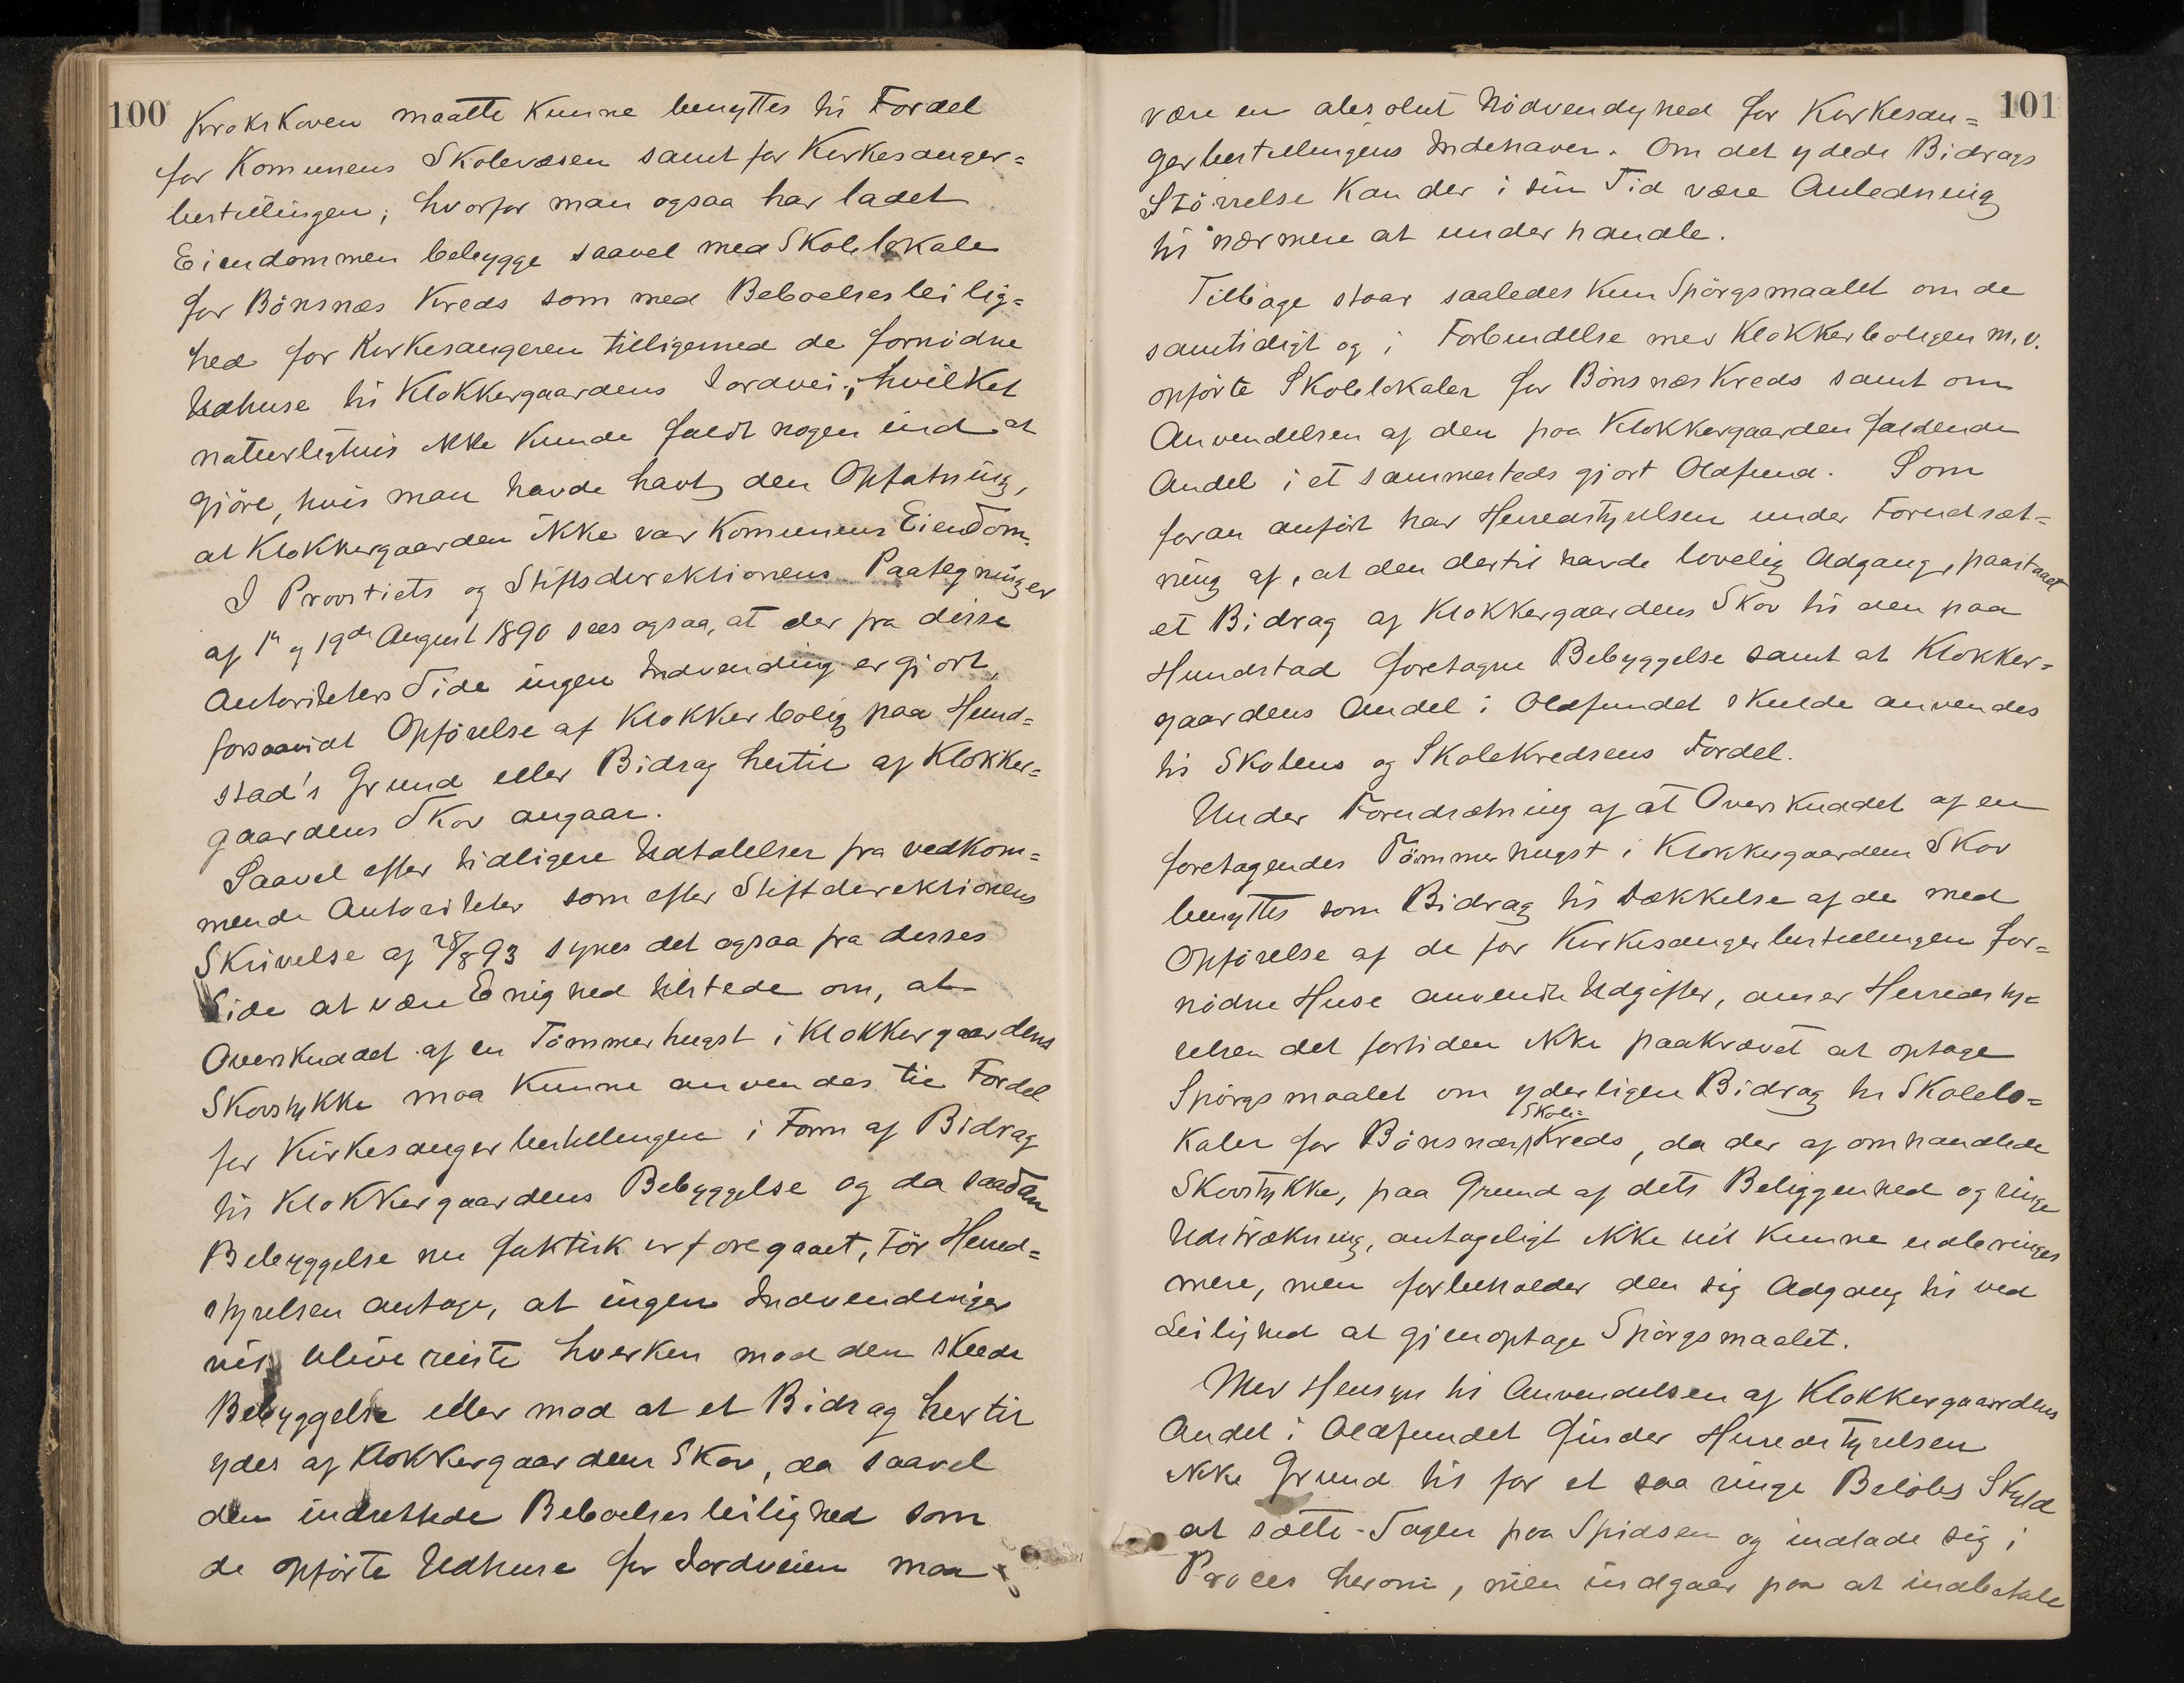 100
Krokskoven maatte kunne benyttes til Fordel
for Komunens Skolevæsen samt for Kirkesanger=
bestillingen; hvorfor man ogsaa har ladet
Eiendommen bebygge saavel med Skolelokale
for Bönsnæs Kreds som med Beboelsesleilig=
hed for Kirkesangeren tilligemed de fornödne
Udhuse til Klokkergaardens Jordvei; hvilket
naturligtvis ikke kunde faldt nogen ind at
gjöre, hvis man havde havt den Opfatning,
at Klokkergaarden ikke var Komunens Eiendom.
I Provstiets og Stiftsdirektionens Paategninger
af 1ste og 19de August 1890 sees ogsaa, at der fra disse
Autoriteters Side ingen Indvending er gjort,
forsaavidt Opförelse af Klokkerbolig paa Hund=
stad's Grund eller Bidrag hertil af Klokker=
gaardens Skov angaar.
Saavel efter tidligere Udtalelser fra vedkom=
mende Autoriteter som efter Stiftsdirektionens
Skrivelse af 28/8 93 synes det ogsaa fra disses
Side at være Enighed tilstede om, at
Overskuddet af en Tömmerhugst i Klokkergaardens
Skovstykke maa kunne anvendes til Fordel
for Kirkesangerbestillingen i Form af Bidrag
til Klokkergaardens Bebyggelse og da saadan
Bebyggelse nu faktisk er foregaaet, tör Herred=
styrelsen antage, at ingen Indvendinger
vil blive reiste hverken mod den skeede
Bebyggelse eller mod at et Bidrag hertil
ydes af Klokkergaardens Skov, da saavel
den indrettede Beboelsesleilighed som
de opförte Udhuse for Jordveien maa
101
være en absolut Nödvendighed for Kirkesan=
gerbestillingens Indehaver. Om det ydede Bidrags
Störrelse kan der i sin Tid være Anledning
til nærmere at underhandle.
Tilbage staar saaledes kun Spörgsmaalet om de
samtidigt og i Forbindelse med Klokkerboligen m.v.
opförte Skolelokaler for Bönsnæs Kreds samt om
Anvendelsen af den paa Klokkergaarden faldende
Andel i et sammesteds gjort Oldfund. Som
foran anfört har Herredstyrelsen under Forudsæt=
ning af, at den dertil havde lovelig Adgang, paastaaet
et Bidrag af Klokkergaardens Skov til den paa
Hundstad foretagne Bebyggelse samt at Klokker=
gaardens Andel i Oldfundet skulde anvendes
til Skolens og Skolekredsens Fordel.
Under Forudsætning af at Overskuddet af en
foretagendes Tömmerhugst i Klokkergaardens Skov
benyttes som Bidrag til Dækkelse af de med
Opförelse af de for Kirkesangerbestillingen for=
nödne Huse anvendte Udgifter, anser Herredsty=
relsen det fortiden ikke paakrævet at optage
Spörgsmaalet om yderligere Bidrag til Skolelo=
kaler for Bönsnæs Skole=Kreds, da der af omhandlede
Skovstykke, paa Grund af dets Beliggenhed og ringe
Udstrækning, antageligt ikke vil kunne udbringes
mere, men forbeholder den sig Adgang til ved
Leilighed at gjenoptage Spörgsmaalet.
Med Hensyn til Anvendelsen af Klokkergaardens
Andel i Oldfundet finder Herredstyrelsen
ikke Grund til for et saa ringe Belöbs Skyld
at sætte Sagen paa Spidsen og indlade sig i
Proces herom, men indgaar paa at indbetale